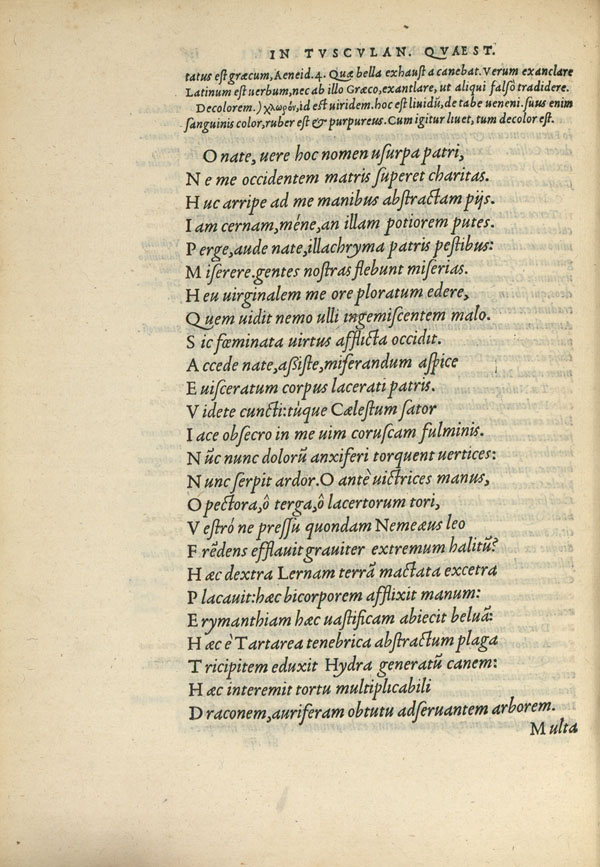 IN TVSCVLAN. QVAEST.
tatus est græcum, Aeneid.4. Quæ bella exhausta canebat. Verum exanclare
Latinum est uerbum, nec ab illo Græco, exantlare, ut aliqui falsò tradidere.
Decolorem.) χλωρόν, id est uiridem. hoc est liuidū, de tabe ueneni. suus enim
sanguinis color, ruber est & purpureus. Cum igitur liuet, tum decolor est.
O nate, uere hoc nomen usurpa patri,
Ne me occidentem matris superet charitas.
Huc arripe ad me manibus abstractam pijs.
Iam cernam, méne, an illam potiorem putes.
Perge, aude nate, illachryma patris pestibus:
Miserere. gentes nostras flebunt miserias.
Heu uirginalem me ore ploratum edere,
Quem uidit nemo ulli ingemiscentem malo.
Sic fœminata uirtus afflicta occidit.
Accede nate, assiste, miserandum aspice
Euisceratum corpus lacerati patris.
Videte cuncti: túque Cælestum sator
Iace obsecro in me uim coruscam fulminis.
Nūc nunc dolorū anxiferi torquent uertices:
Nunc serpit ardor. O antè uictrices manus,
O pectora, ô terga, ô lacertorum tori,
Vestró ne pressu quondam Nemeæus leo
Frēdens efflauit grauiter extremum halitū?
Hæc dextra Lernam terrā mactata excetra
Placauit: hæc bicorporem afflixit manum:
Erymanthiam hæc uastificam abiecit beluā:
Hæc è Tartarea tenebrica abstractum plaga
Tricipitem eduxit Hydra generatū canem:
Hæc interemit tortu multiplicabili
Draconem, auriferam obtutu adseruantem arborem.
Multa